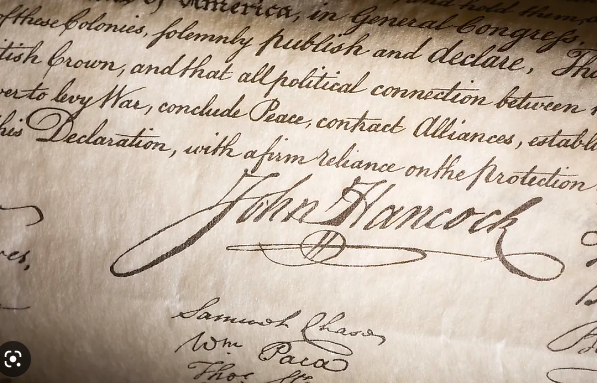 of America, in General Congress,
of these Colonies, solemnly publish and declare, Tha
tish Crown, and that all political connection between
er to levy War, conclude Peace, contract Alliances, establ
his Declaration, with a firm reliance on the Protection
John Hancock
ves,
Samuel Chase
Wm Paca
Thos